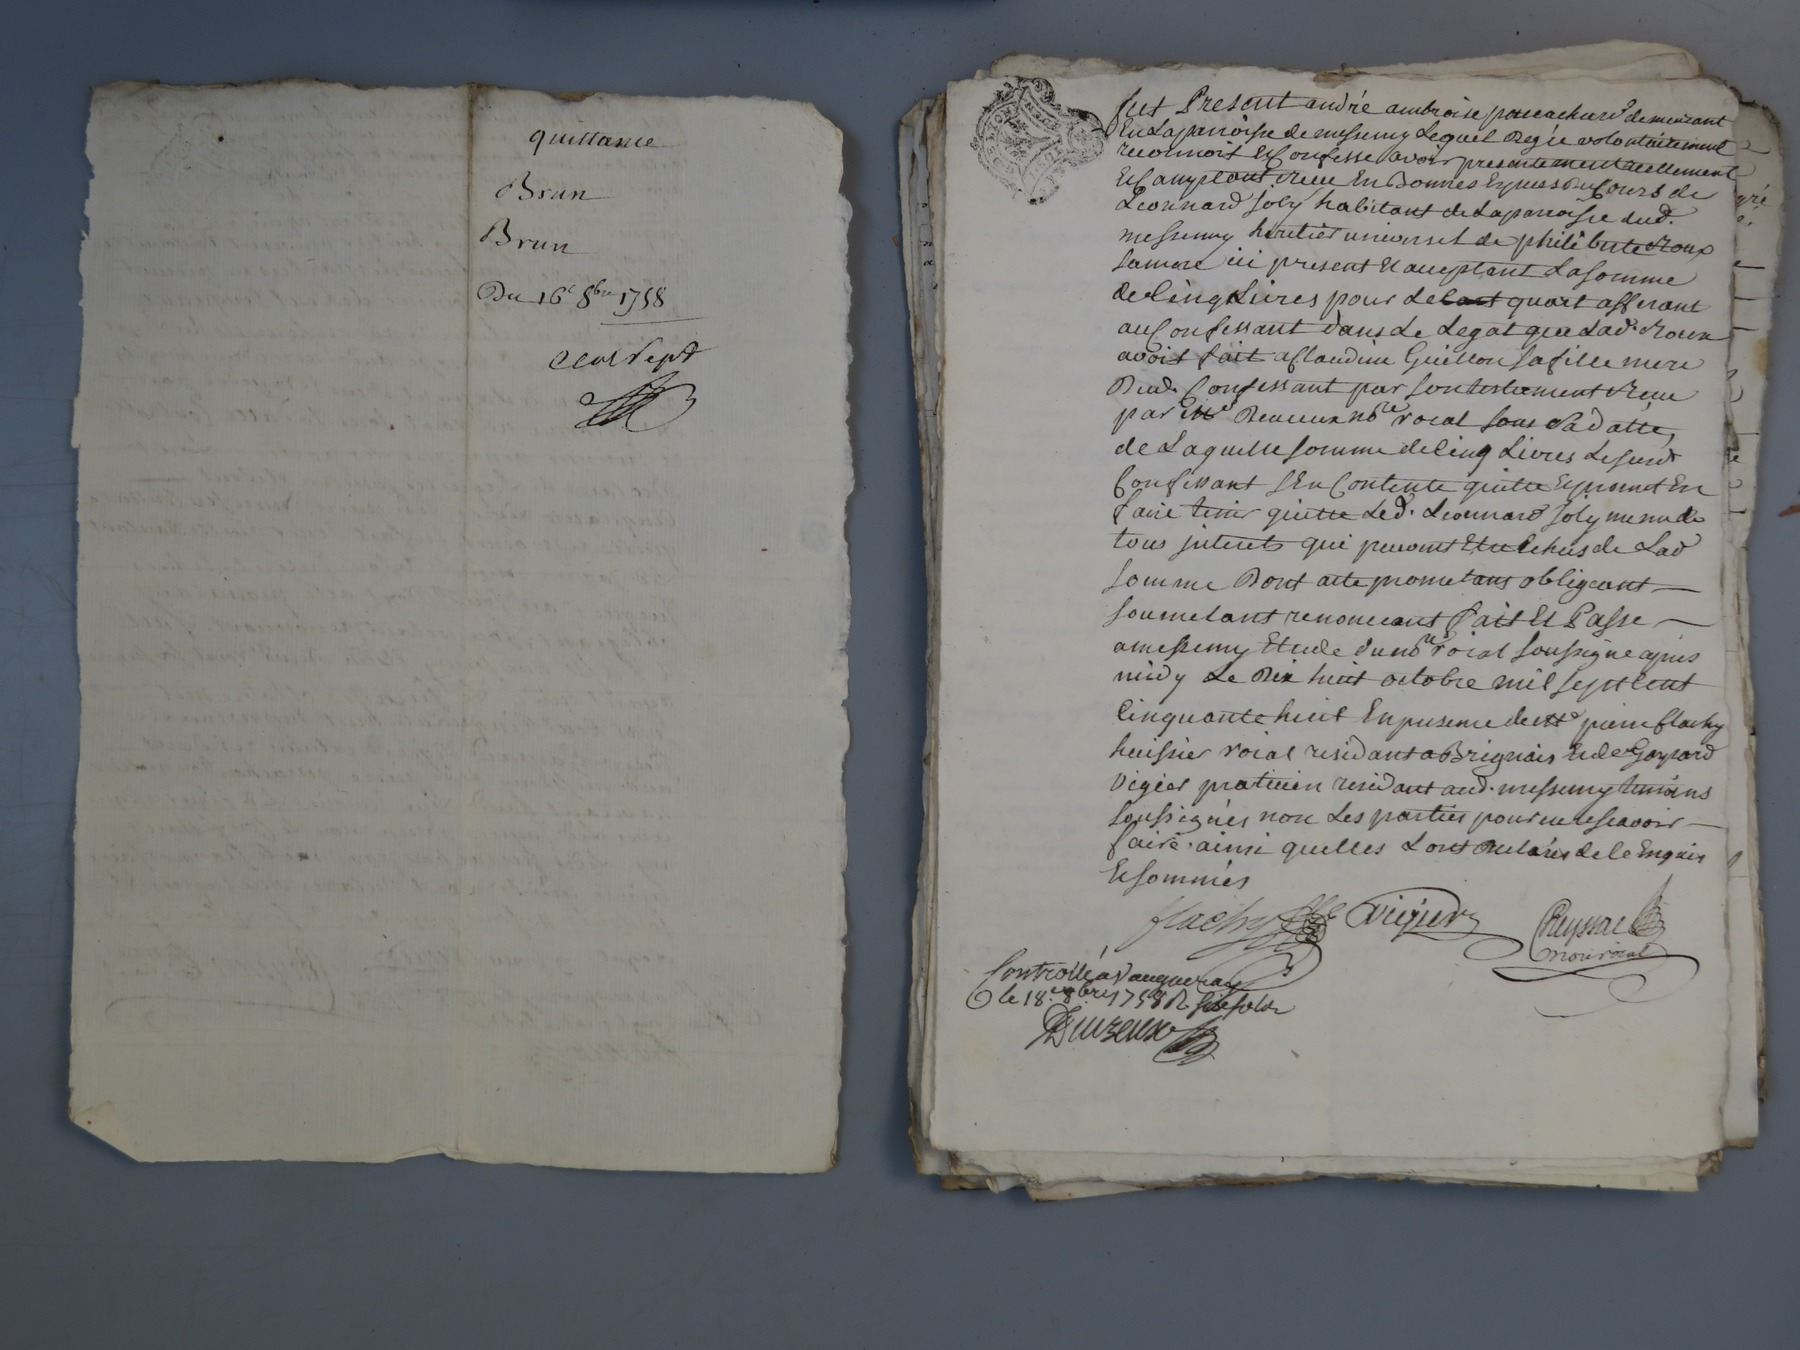 quittance
Brun
Brun
Du 16e 8bre 1758
cent sept
fut Present andré ambroise demeurant
En La parroisse de messimy Lequel De gré volontairement
reconnoit Et Confesse avoir presentement reellement
Et Comptant Receu En Bonnes Especes Du Cours de
Leonnard joly habitant de La parroisse dud.
messimy heritier universel de philiberte Roux
sa mere ici present Et acceptant La somme
de Cinq Livres pour Le quart afferant
au Confessant dans Le Legat que Lad. Roux
avoit fait a Claudine Guillon sa fille mere
Dud. Confessant par son testament Receu
par Me nore roial sous sa datte,
de Laquelle somme de Cinq Livres Led
Confessant s'En Contente quitte Et promet En
faire tenir quitte Led. Leonnard joly meme de
tous interets qui peuvent Etre Echus de Lad
somme Dont acte promettant obligeant
soumetant renonceant fait Et Passé
a messimy Etude du nore roial soussigné apres
midy Le Dix huit octobre mil sept Cent
Cinquante huit En presence de Me pierre flachy
huissier roial residant a Brignais Et de Gaspard
Vigier praticien residant aud. messimy temoins
soussignés non Les parties pour ne sçavoir
faire. ainsi quelles L'ont Declarés de ce Enquis
Et sommés
flachy Vigier Cheyssac
nore roial
Controllé a Vaugneray
le 18e 8bre 1758 R. sols